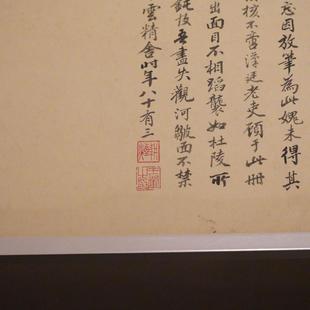 忘因放筆為此媿未得其
核不啻漢廷老吏頋于此册
出面目不相蹈襲如杜陵所
技吾盡失觀河皺面不禁
雲精舍时年八十有三